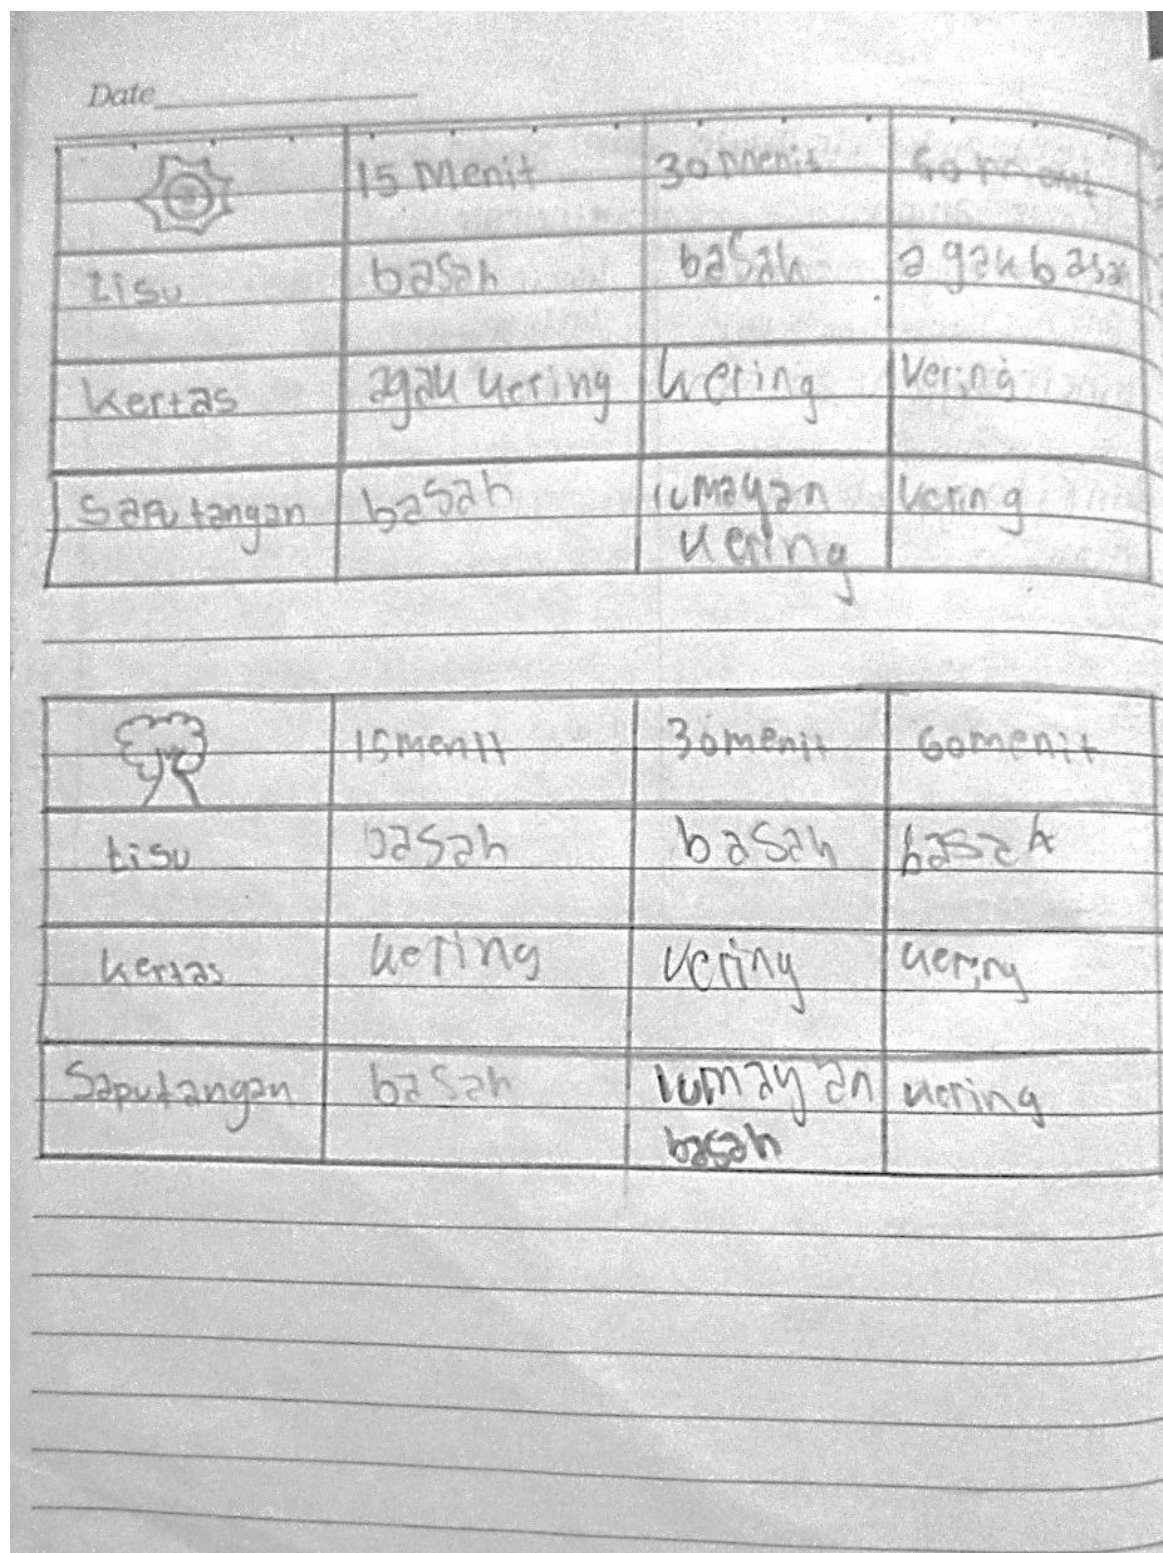 Date
15 Menit 30 Menit 60 Menit
tisu basah basah agak basah
kertas agak kering kering kering
Saputangan basah lumayan kering
kering
15 menit 30 menit 60 menit
tisu basah basah basah
kertas kering kering kering
Saputangan basah lumayan kering
basah